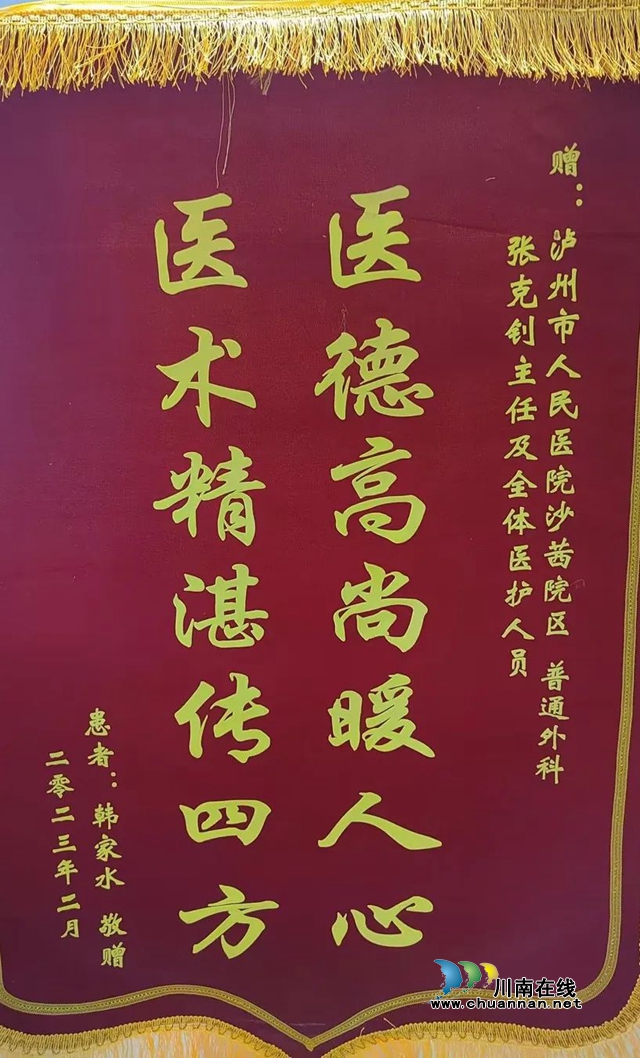 赠：泸州市人民医院沙茜院区 普通外科
张克钊主任及全体医护人员
医德高尚暖人心
医术精湛传四方
患者：韩家水 敬赠
二零二三年二月
川南在线
www.chuannan.net